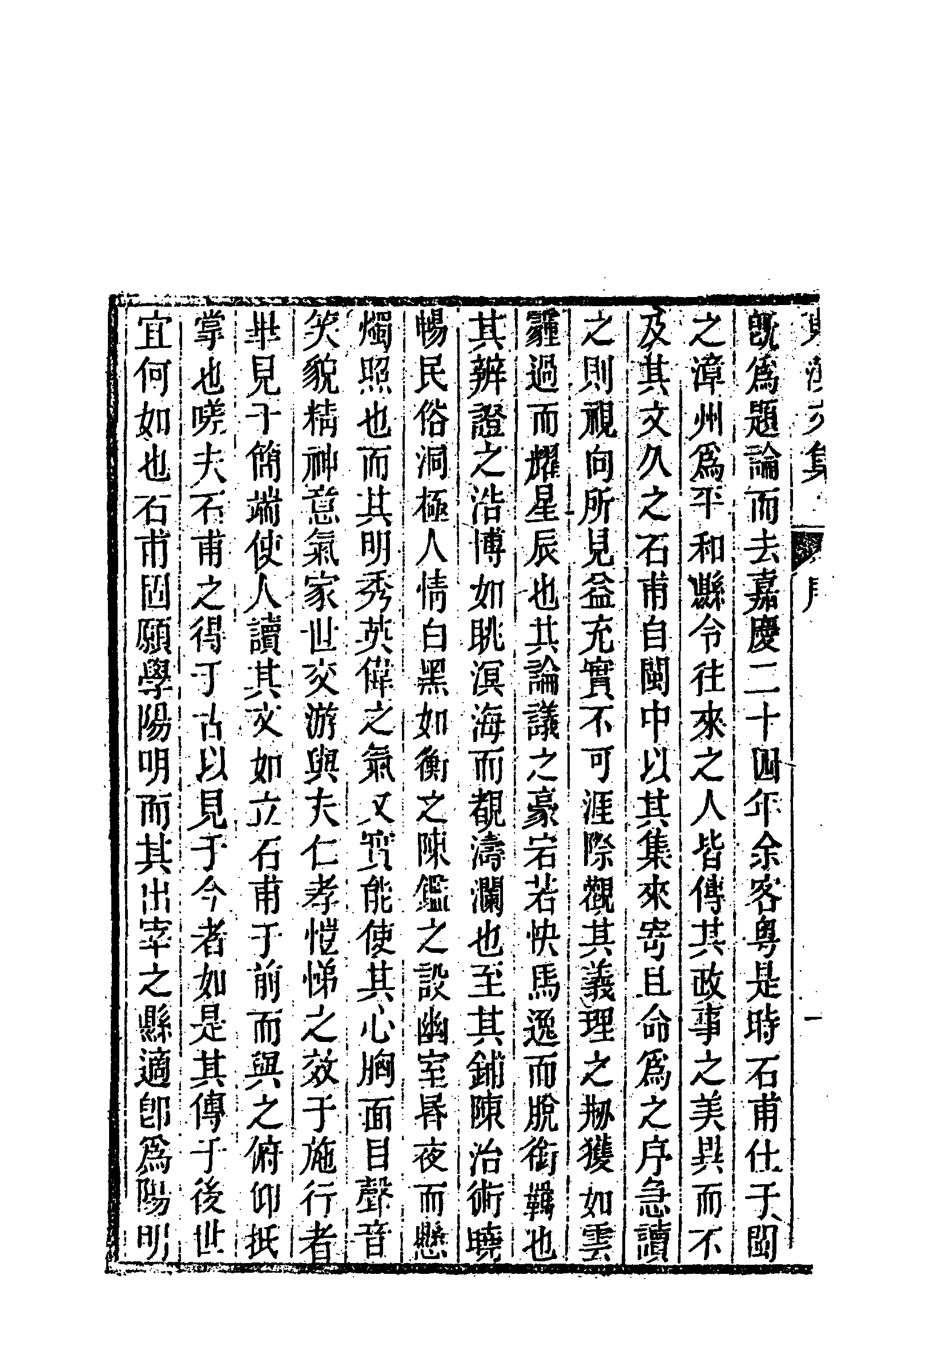 東溟文集 序 一
旣爲題論而去嘉慶二十四年余客粤是時石甫仕于閩
之漳州爲平和縣令往來之人皆傳其政事之美異而不
及其文久之石甫自閩中以其集來寄且命爲之序急讀
之則視向所見益充實不可涯際觀其義理之剏獲如雲
霾過而耀星辰也其論議之豪宕若快馬逸而脫銜羈也
其辨證之浩博如眺溟海而覩濤瀾也至其鋪陳治術曉
暢民俗洞極人情白黑如衡之陳鑑之設幽室昬夜而懸
燭照也而其明秀英偉之氣又實能使其心胸面目聲音
笑貌精神意氣家世交游與夫仁孝愷悌之效于施行者
畢見于簡端使人讀其文如立石甫于前而與之俯仰抵
掌也嗟夫石甫之得于古以見于今者如是其傳于後世
宜何如也石甫固願學陽明而其出宰之縣適卽爲陽明